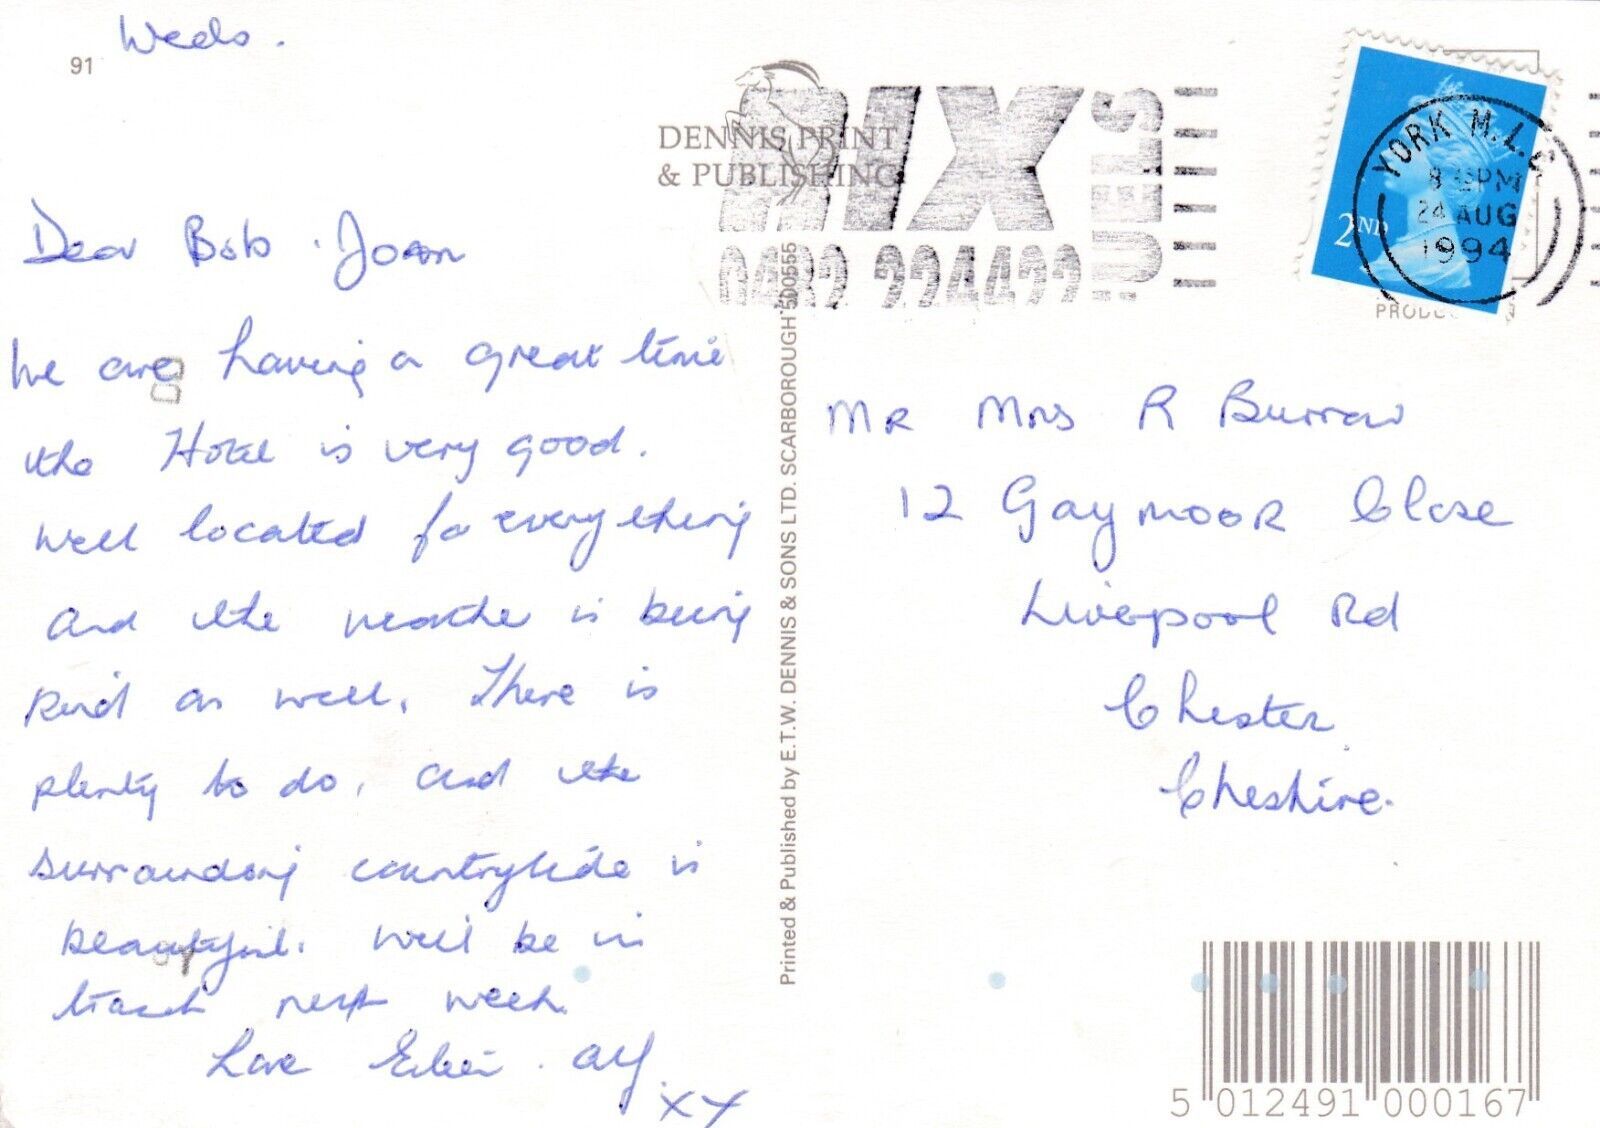 Weds.
91
DENNIS PRINT
& PUBLISHING
RIX
FUELS
0482 224422
YORK M.L.C
8 PM
24 AUG
1994
2ND
Dear Bob . Joan
We are having a great time
the Hotel is very good.
Well located for everything
and the weather is being
kind as well. There is
plenty to do, and the
surrounding countryside is
beautiful. Will be in
touch next week.
Love Eileen . Alf
XX
Printed & Published by E.T.W. DENNIS & SONS LTD. SCARBOROUGH 500555
MR Mrs R Burrow
12 Gaymoor Close
Liverpool Rd
Chester
Cheshire.
5 012491 000167